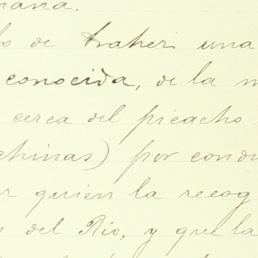 ñana.
lo de traher una
conocida, de la m
cerca del picacho
chinas) por condu
r quien la recog
s del Rio, y que la